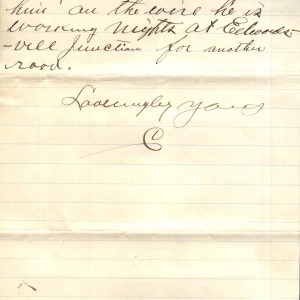 him on the wire he is
working nights at Edwards-
-vill Junction for another
road.
Lovingly yours
C